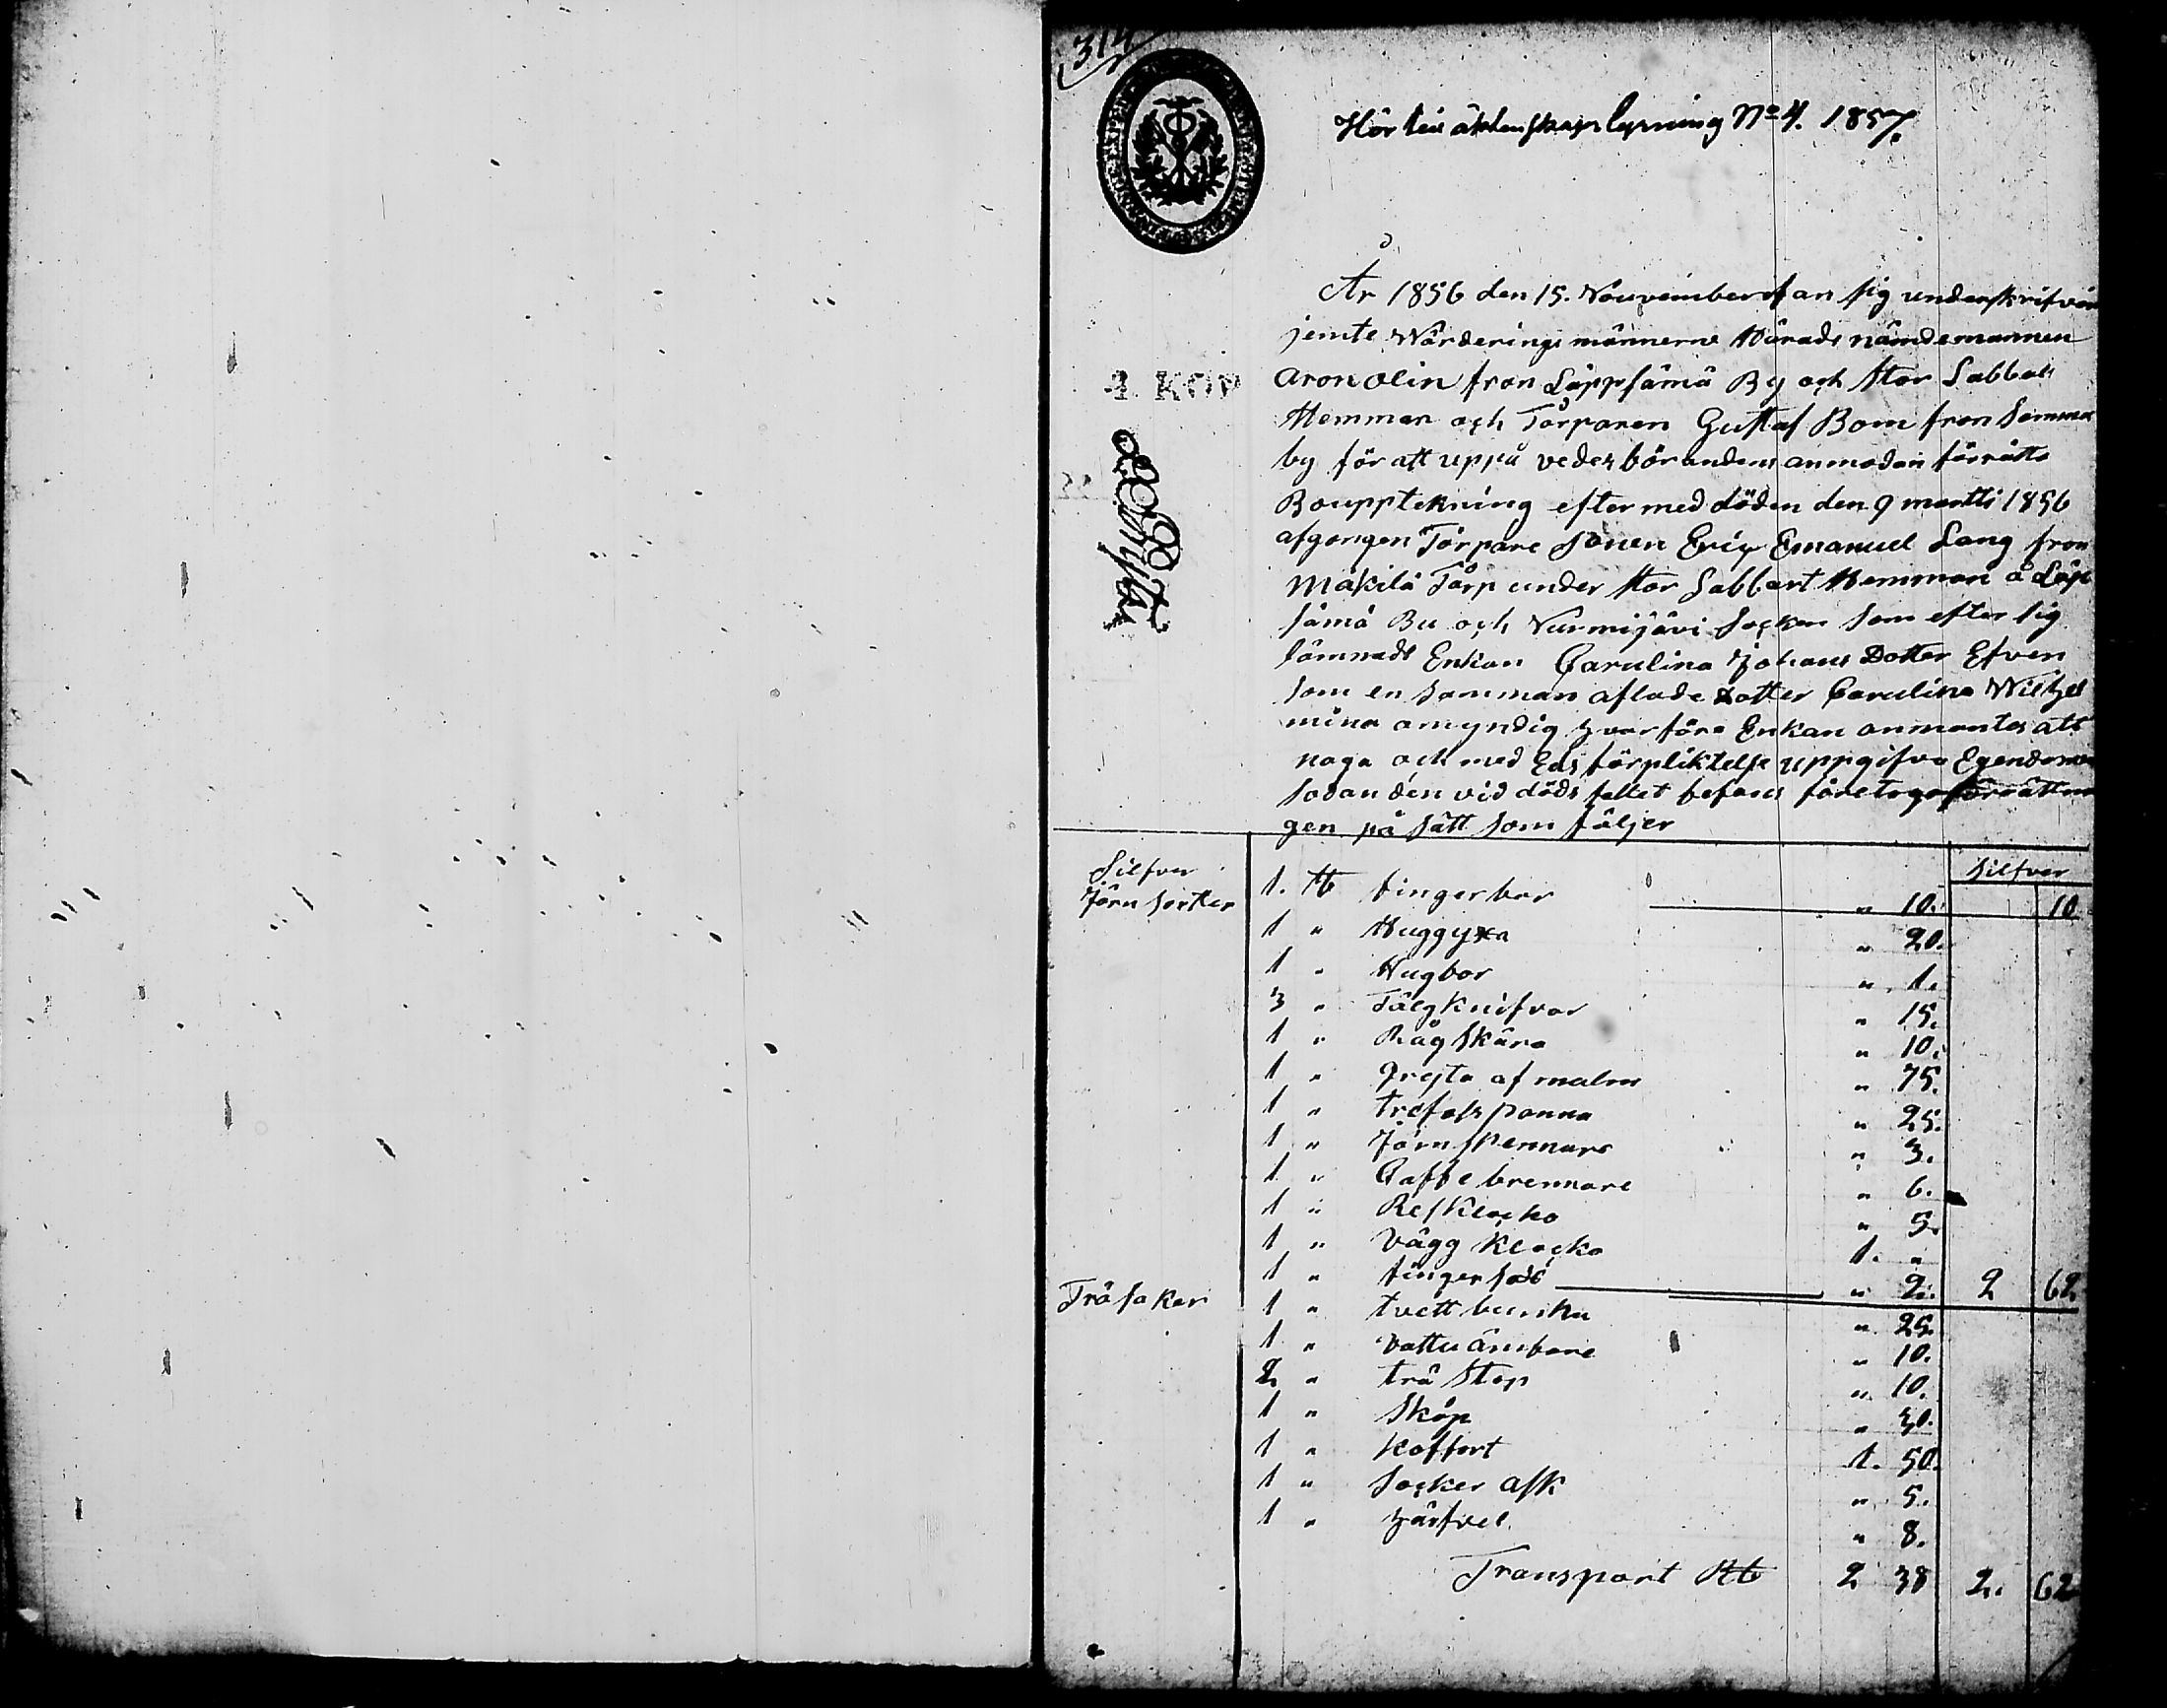 314
Hör till äktenskaps lysning No 4. 1857.
År 1856 den 15. Nouvember fan sig underskrifven
jemte Wärderings männerne Härads nämdemannen
Aron Olin fron Läppsämä By och Stor Sabbals
Hemman och Torparen Gustaf Bom fron Samma
by för att uppå vederbörandens anmodan förrätta
Bouppteckning efter med döden den 9 martti 1856
afgongen Torpare Sonen Eric Emanuel Lang fron
Mäkilä Torp under Stor Sabbart Hemman å Läp
sämä Bu och Nurmijävi Socken Som efter sig
lämnade Enkan Carulina Johans Dotter Efven
som en samman aflade Dotter Carulina Wilhel
mina omyndig hvarföre Enkan anmantes att
noga och med Eds förpliktelse uppgifva Egendomen
sodan den vid döds fallet befans företogs förrättnin
gen på sätt som följer
4 KOP
Silfver
Silfver
Järn sorter
1. st fingerbor " 10. 10
1 " Huggyxa " 20.
1 " Hugbor " 1.
3 " Tälgknifvar " 15.
1 " Råg skära " 10.
1 " Gryta af malm " 75.
1 " trefots panna " 25.
1 " Järn spennare " 3.
1 " Caffe brennare " 6.
1 " Resklocka " 5.
1 " Vägg Klocka 1. "
1 " finger " 2. 2 62
Träsaker
1 " tvett bunka " 25.
1 " Vattu ämbare " 10.
2 " trä Stop " 10.
1 " Skåp " 30.
1 " Koffort 1. 50.
1 " Socker ask " 5.
1 " härfvel " 8.
Transport Rb 2 38 2. 62